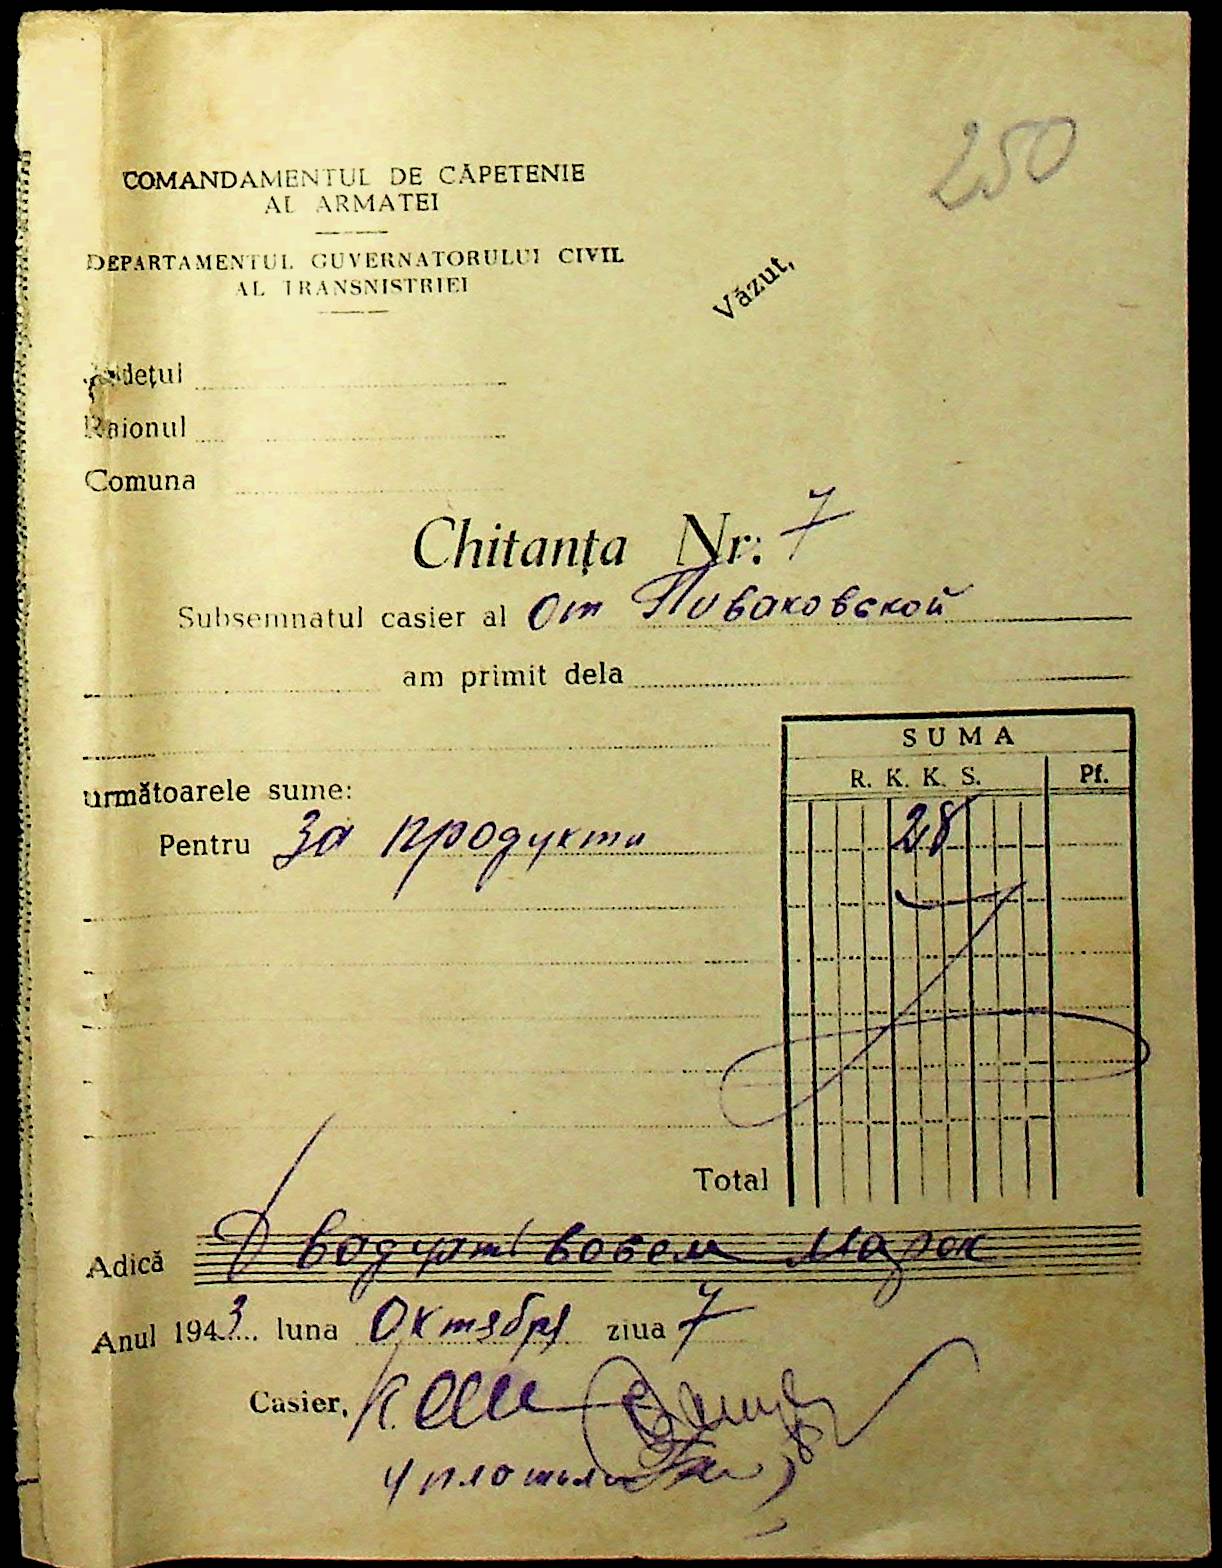 250
COMANDAMENTUL DE CĂPETENIE
AL ARMATEI
DEPARTAMENTUL GUVERNATORULUI CIVIL
AL TRANSNISTRIEI
Văzut,
Județul
Raionul
Comuna
Chitanța Nr: 7
Subsemnatul casier al От Піваковской
am primit dela
SUMA
R. K. K. S. Pf.
următoarele sume:
Pentru За продукти 28
Total
Adică Двадцять восем марок
Anul 1943 luna Октября ziua 7
Casier,